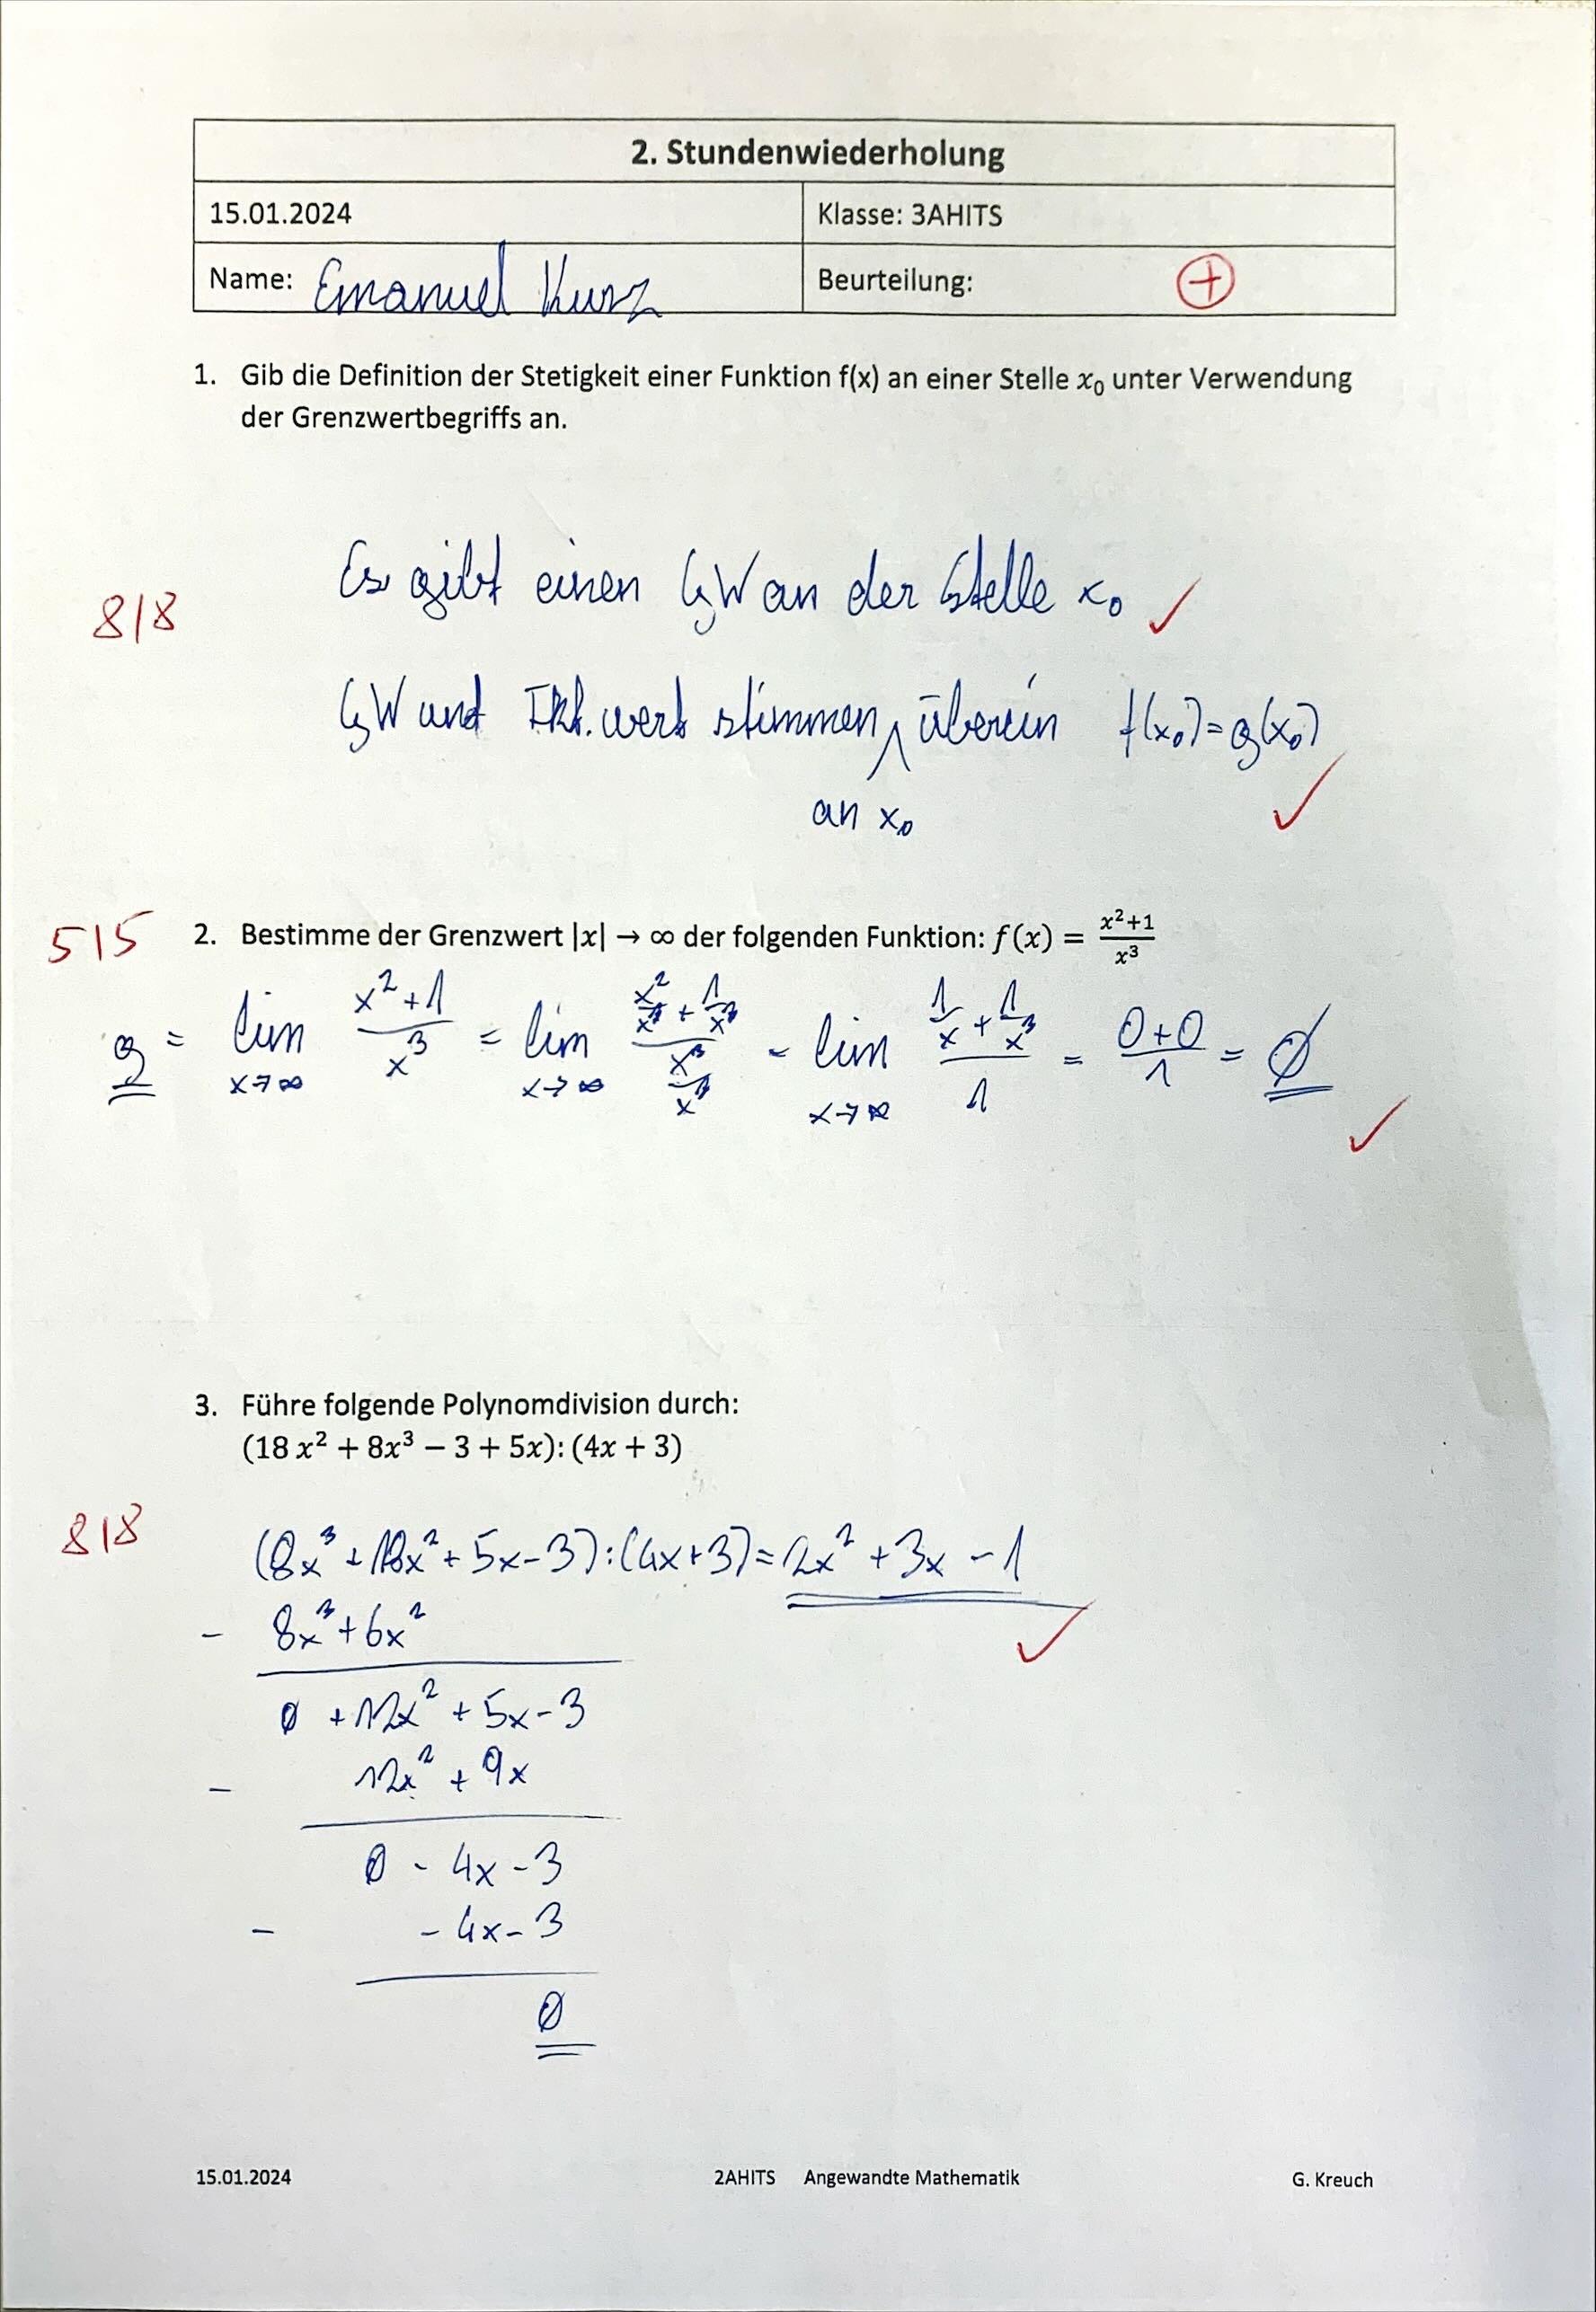 2. Stundenwiederholung
15.01.2024 Klasse: 3AHITS
Name: Emanuel Kurz Beurteilung: +
1. Gib die Definition der Stetigkeit einer Funktion f(x) an einer Stelle x₀ unter Verwendung
der Grenzwertbegriffs an.
Es gibt einen GW an der Stelle x₀ ✓
8/8
GW und Fkt.wert stimmen ∧ überein f(x₀)=g(x₀)
an x₀ ✓
5/5 2. Bestimme der Grenzwert |x| → ∞ der folgenden Funktion: f(x) = (x²+1)/x³
g = lim x→∞ (x²+1)/x³ = lim x→∞ (x²/x³ + 1/x³)/(x³/x³) = lim x→∞ (1/x + 1/x³)/1 = (0+0)/1 = 0 ✓
3. Führe folgende Polynomdivision durch:
(18 x² + 8x³ − 3 + 5x): (4x + 3)
8/8
(8x³ + 18x² + 5x - 3) : (4x+3) = 2x² + 3x - 1 ✓
- 8x³ + 6x²
0 + 12x² + 5x - 3
- 12x² + 9x
0 - 4x - 3
- - 4x - 3
0
15.01.2024 2AHITS Angewandte Mathematik G. Kreuch